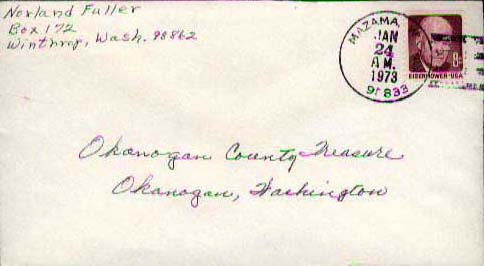 Norland Fuller
Box 172
Winthrop, Wash. 98862
MAZAMA,
JAN
24
A.M.
1973
98833
8¢
EISENHOWER·USA
Okanogan County Treasure
Okanogan, Washington